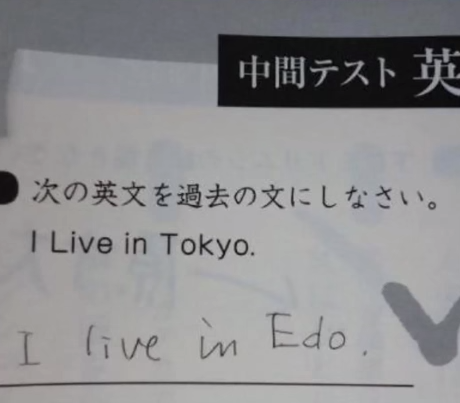 中間テスト 英
次の英文を過去の文にしなさい。
I Live in Tokyo.
I live in Edo.